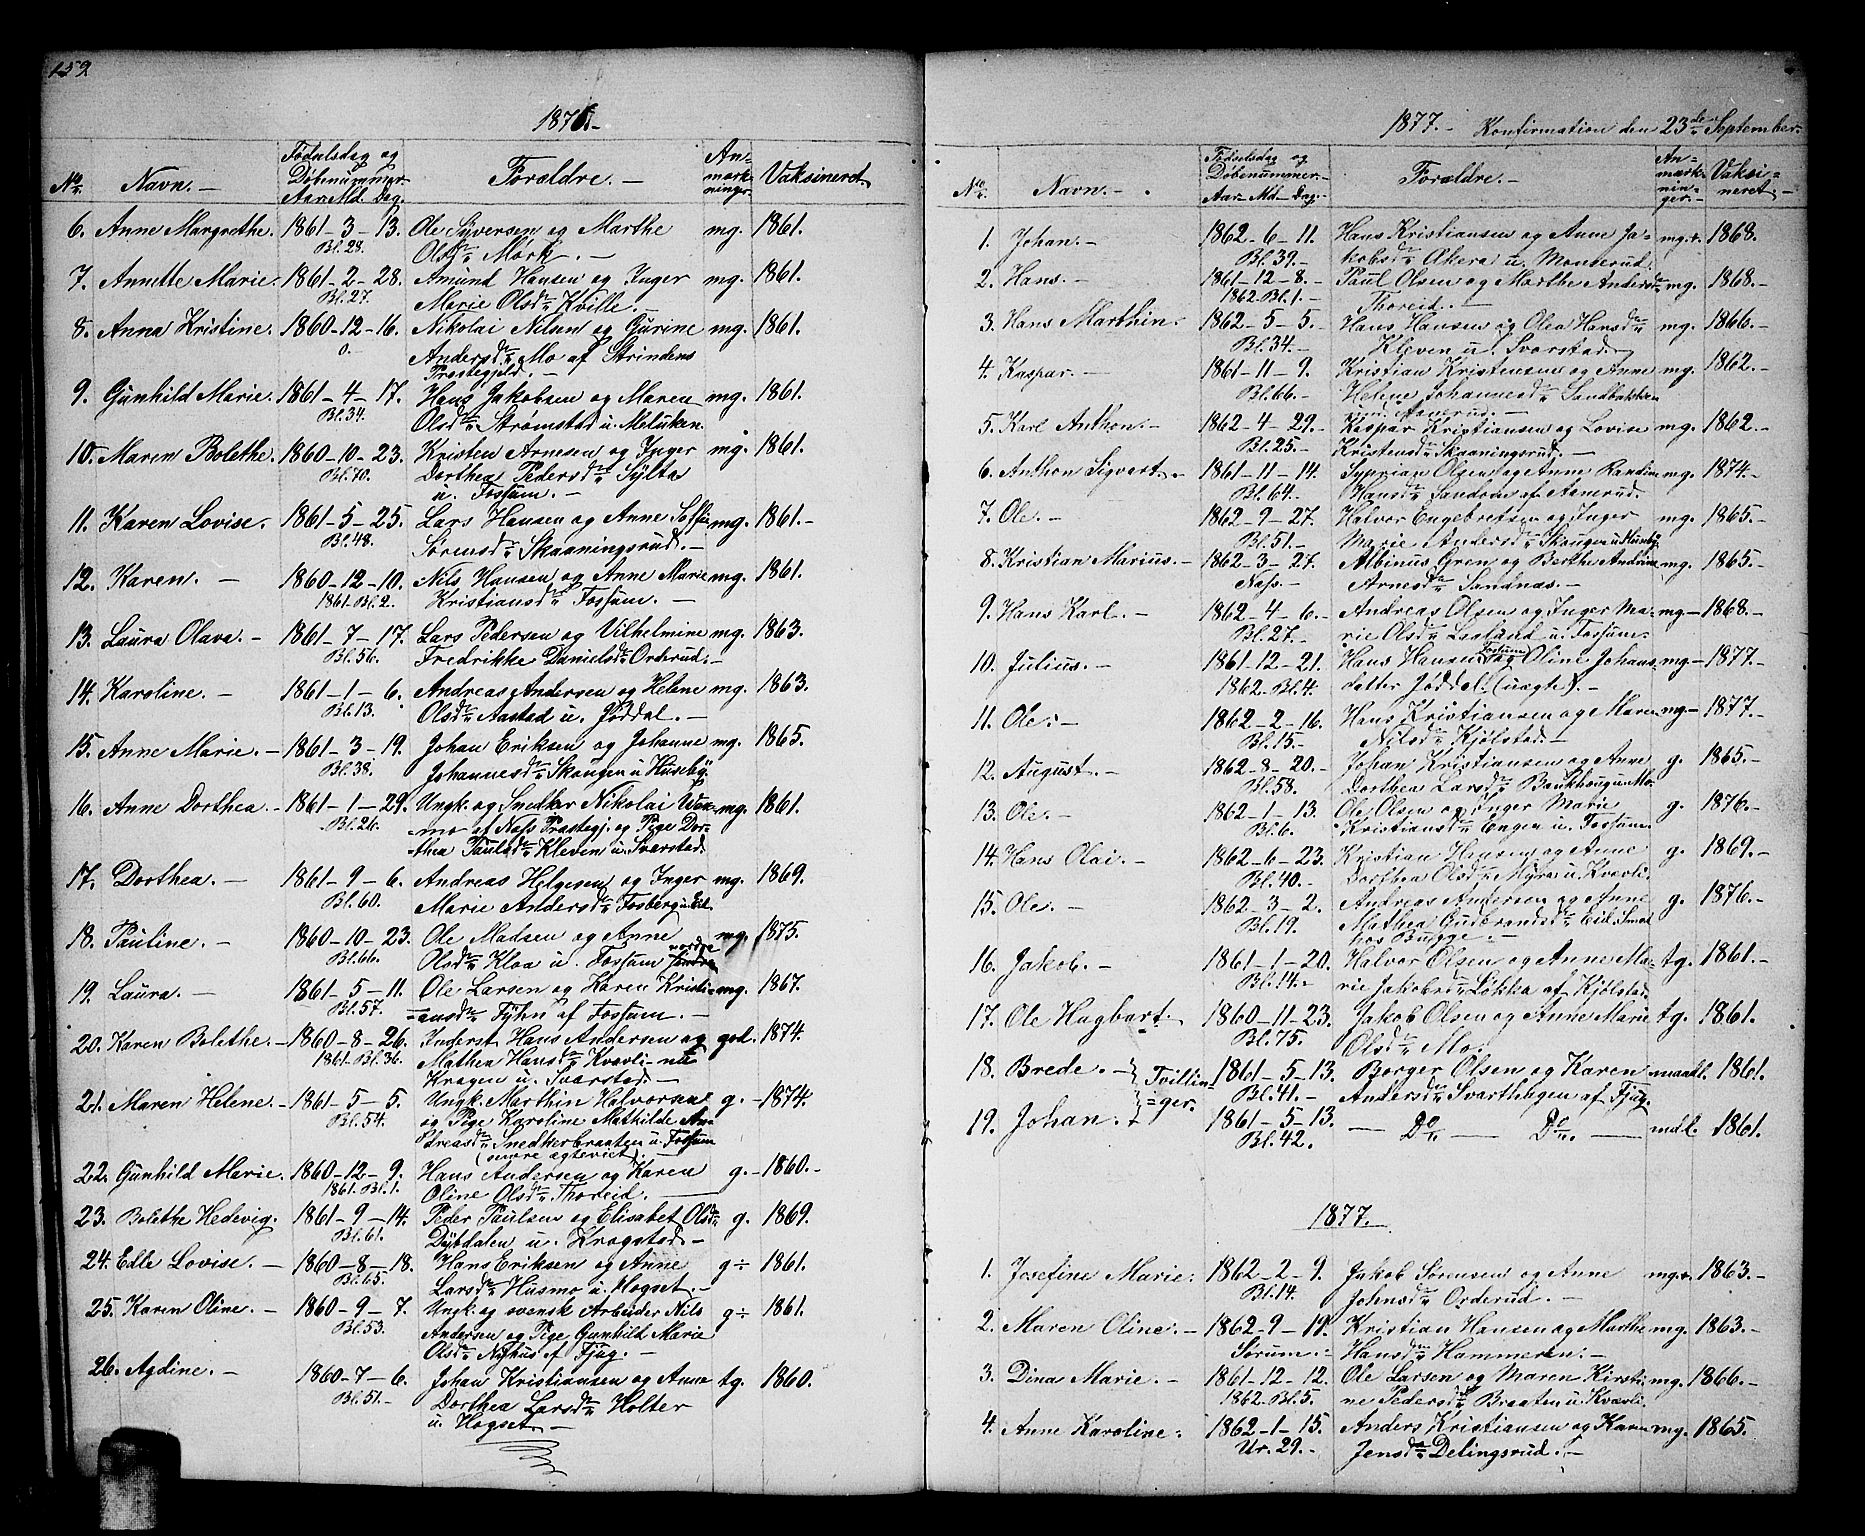 152
1876.-
No. Navn. - Fødselsdag og Døbenummer. Aar Md. Dag. Forældre. - Anmærkninger. Vaksineret.
6. Anne Margrethe. 1861 - 3 - 13. Ole Syversen og Marthe mg. 1861.
Bl. 28. Olsdr Mørk. -
7. Annette Marie. 1861 - 2 - 28. Amund Hansen og Inger mg. 1861.
Bl. 27. Marie Olsdr Kville. -
8. Anna Kristine. 1860 - 12 - 16. Nikolai Nilsen og Gurine mg. 1861.
o. - Andersdr Mo af Strindens
Prestegjeld. -
9. Gunhild Marie. 1861 - 4 - 17. Hans Jakobsen og Maren mg. 1861.
Bl. 34. Olsdr Strømstad u. Meluken.
10. Maren Bolethe. 1860 - 10 - 23. Kristen Arnesen og Inger mg. 1861.
Bl. 70. Dorthea Pedersdr Sylta
u. Fossum. -
11. Karen Lovise. 1861 - 5 - 25. Lars Hansen og Anne Soffie mg. 1861. -
Bl. 48. Sørensdr Skaaningsrud. -
12. Karen. - 1860 - 12 - 10. Nils Hansen og Anne Marie mg. 1861.
1861. Bl. 2. Kristiansdr Fossum. -
13. Laura Olava. - 1861 - 7 - 17. Lars Pedersen og Vilhelmine mg. 1863.
Bl. 56. Fredrikke Danielsdr Orderud. -
14. Karoline. - 1861 - 1 - 6. Andreas Andersen og Helene mg. 1863.
Bl. 13. Olsdr Aastad u. Jøddal. -
15. Anne Marie. - 1861 - 3 - 19. Johan Eriksen og Johanne mg. 1865.
Bl. 38. Johannesdr Skougen u Huseby.
16. Anne Dorthea. - 1861 - 1 - 29. Ungk. og Snedker Nikolai mg. 1861.
Bl. 26. af Næss Præstegj. og Pige Dor-
thea Paulsdr Kleven u. Svarstad.
17. Dorthea. - 1861 - 9 - 6. Andreas Helgesen og Inger mg. 1869.
Bl. 60. Marie Andersdr Fosberg u. Eil.
18. Pauline. - 1860 - 10 - 23. Ole Madsen og Anne mg. 1875.
Bl. 66. Olsdr Kloa u. Fossum nordre
19. Laura. - 1861 - 5 - 11. Ole Larsen og Karen Kristi- mg. 1867.
Bl. 57. ansdr Tyhn af Fossum. -
20. Karen Bolethe. - 1860 - 8 - 26. Inderst Hans Andersen og god. 1874.
1861. Bl. 36. Mathea Hansdr Kvævli - nu
Kragen u. Svarstad. -
21. Maren Helene. - 1861 - 5 - 5. Ungk. Marthin Halvorsen g. - 1874.
Bl. 54. og Pige Karoline Mathilde An-
dreasdr Snedkerbraaten u. Fossum
22. Gunhild Marie. 1860 - 12 - 9. Hans Andersen og Karen g. - 1860. -
1861. Bl. 1. Oline Olsdr Thoreid. -
23. Bolethe Hedevig. 1861 - 9 - 14. Peder Paulsen og Elisabet Olsdr g. 1869.
Bl. 61. Dybdalen u. Kragstad. -
24. Edle Lovise. - 1860 - 8 - 18. Hans Eriksen og Anne g ÷ 1861.
Bl. 65. Larsdr Husmo u. Hogset. -
25. Karen Oline. - 1860 - 9 - 7. Ungk. og svensk Arbeider Nils g ÷ 1861.
Bl. 53. Andersen og Pige Gunhild Marie
Olsdr Nyhus af Fjug. -
26. Agdine. - 1860 - 7 - 6. Johan Kristiansen og Anne tg. 1860.
Bl. 51. - Dorthea Larsdr Holter
u. Hogset. -
1877. - Konfirmation den 23de September.
No. Navn. - Fødselsdag og Døbenummer. Aar - Md - Dag. - Forældre. - Anmærkninger. - Vaksineret. -
1. Johan. - 1862 - 6 - 11. Hans Kristiansen og Anne Ja- mg. +. 1868.
Bl. 39. - kobsdr Akera u. Monserud.
2. Hans. - 1861 - 12 - 8. - Paul Olsen og Marthe Andersdr mg. 1868.
1862. Bl. 1. - Thoreid. -
3. Hans Marthin. 1862 - 5 - 5. Hans Hansen og Olea Hansdr mg. 1866. -
Bl. 34. - Kleven u. Svarstad. -
4. Kaspar. - 1861 - 11 - 9. Kristian Kristensen og Anne mg. 1862.
Bl. 66. - Helene Johannesdr Sandbakken
5. Karl Anthon. - 1862 - 4 - 29. Kaspar Kristiansen og Lovise mg. 1862. -
Bl. 25. - Kristensdr Skaaningsrud. -
6. Anthon Sigvart. - 1861 - 11 - 14. Syprian Olsen og Anne Randine mg. 1874. -
Bl. 64. - Hansdr Sandvin af Aamerud.
7. Ole. - 1862 - 9 - 27. Halvor Engebretsen og Inger mg. 1865. -
Bl. 51. - Marie Andersdr Skougen u Huseby.
8. Kristian Marius. - 1862 - 3 - 27. Albinus Gren og Berthe Andrine mg. 1865. -
Næss. - Arnesdr Sandnæs. -
9. Hans Karl. - 1862 - 4 - 6. - Andreas Olsen og Inger Ma- mg - 1868. -
Bl. 27. - rie Olsdr u. Fossum. -
10. Julius. - 1861 - 12 - 21. Hans Hansen Fossum og Oline Johans- mg. - 1877. -
1862. Bl. 4. datter Jøddal. (uægte). -
11. Ole. - 1862 - 2 - 16. Hans Kristiansen og Maren mg. - 1877. -
Bl. 15. - Nilsdr Kjølstad. -
12. August. - 1862 - 8 - 20. - Johan Kristiansen og Anne g. 1865. -
Bl. 58. Dorthea Larsdr Baukhoug u. Mo.
13. Ole. - 1862 - 1 - 13. Ole Olsen og Inger Marie g. 1876. -
Bl. 6. Kristiansdr Engen u. Fossum.
14. Hans Olai. - 1862 - 6 - 23. Kristian Hansen og Anne g. 1869. -
Bl. 40. - Dorthea Olsdr Myra u. Kvævli.
15. Ole. - 1862 - 3 - 2. Andreas Andersen og Anne g. 1876. -
Bl. 19. Mathea Gudbrandsdr Eil. Smed
hos Bugge. -
16. Jakob. - 1861 - 1 - 20. Halvor Olsen og Anne Ma- tg. 1861. -
Bl. 14. - rie Jakobsdr Løkka af Kjølstad.
17. Ole Hagbart. 1860 - 11 - 23. Jakob Olsen og Anne Marie tg. 1861.
Bl. 75. Olsdr Mo. -
18. Brede. - Tvillin- 1861 - 5 - 13. Borger Olsen og Karen maadl. 1861.
ger. Bl. 41. - Andersdr Svarthagen af Fjug.
19. Johan. 1861 - 5 - 13. - Do - Do - mdl. 1861.
Bl. 42.
1877.
1. Josefine Marie. 1862 - 2 - 9. Jakob Sørensen og Anne mg. +. 1863. -
Bl. 14. Johnsdr Orderud. -
2. Maren Oline. - 1862 - 9 - 19. Kristian Hansen og Marthe mg. 1863. -
Sørum. - Hansdr Hammeren. -
3. Dina Marie. - 1861 - 12 - 12. Ole Larsen og Maren Kirsti- mg. 1866. -
1862. Bl. 5. ne Pedersdr Braaten u. Kvævli.
4. Anne Karoline. 1862 - 1 - 15. Anders Kristiansen og Karen mg. 1865.
Ur. 29. - Jensdr Delingsrud. -